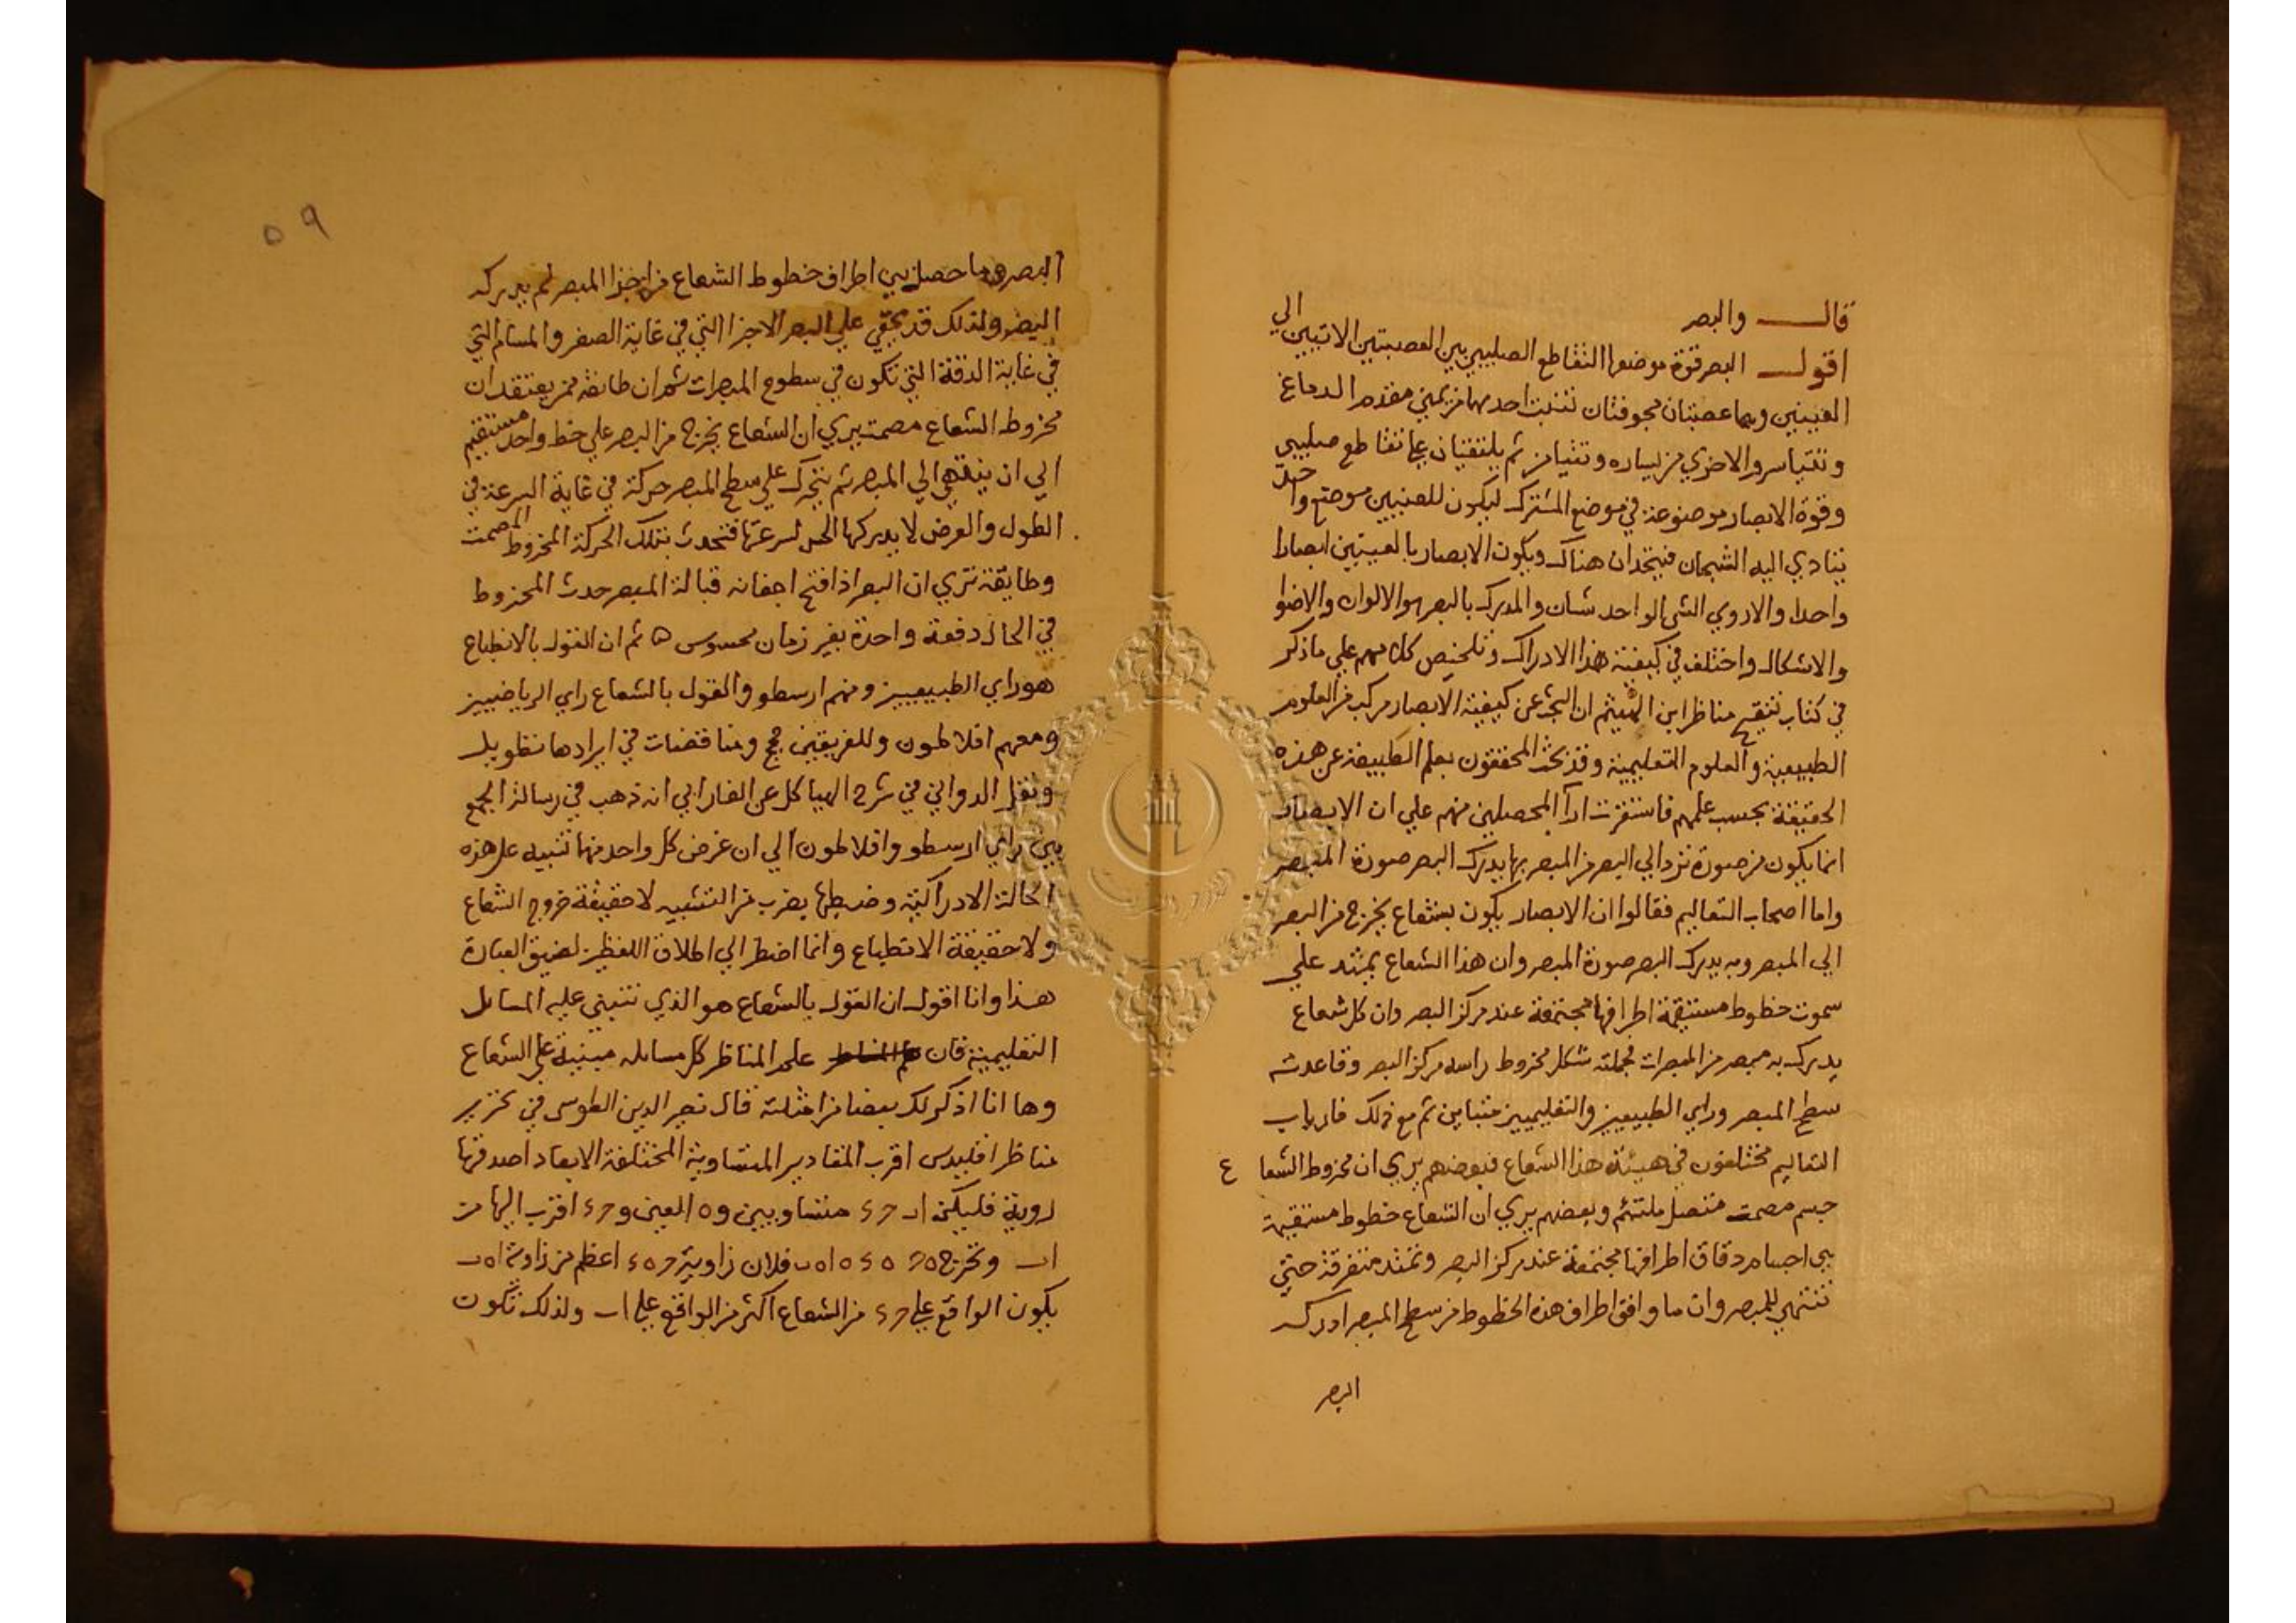 قال والبصر
اقول البصر قوة موضوعها التقاطع الصليبي بين العصبتين الاتيتين الي
العينين وهما عصبتان مجوفتان تنبت احدهما من يمني مقدم الدماغ
وتتياسر والاخري من يساره وتتيامن ثم يلتقيان علي تقاطع صليبي
وقوة الابصار موضوعة في موضع المشترك ليكون للعينين موضع واحد
يتادي اليه الشبحان فيتحدان هناك ويكون الابصار بالعينين ابصارا
واحدا والا روي الشي الواحد شيان والمدرك بالبصر هو الالوان والاضوا
والاشكال واختلف في كيفية هذا الادراك وتلخيص كلامهم علي ما ذكر
في كتاب تنقيح مناظر ابن الهيثم ان البحث عن كيفية الابصار مركب من العلوم
الطبيعية والعلوم التعليمية وقد بحث المحققون بعلم الطبيعة عن هذه
الحقيقة بحسب علمهم فاستقرت ارآ المحصلين منهم علي ان الابصار
انما يكون من صورة ترد الي البصر من المبصر بها يدرك البصر صورة المبصر
واما اصحاب التعاليم فقالوا ان الابصار يكون بشعاع يخرج من البصر
الي المبصر وبه يدرك البصر صورة المبصر وان هذا الشعاع يمتد علي
سموت خطوط مستقيمة اطرافها مجتمعة عند مركز البصر وان كل شعاع
يدرك به مبصر من المبصرات فجملته شكل مخروط راسه مركز البصر وقاعدته
سطح المبصر وراي الطبيعيين والتعليميين متباين ثم مع ذلك فارباب
التعاليم مختلفون في هيئة هذا الشعاع فبعضهم يري ان مخروط الشعاع
جسم مصمت متصل ملتئم وبعضهم يري ان الشعاع خطوط مستقيمة
هي اجسام دقاق اطرافها مجتمعة عند مركز البصر وتمتد متفرقة حتي
تنتهي للمبصر وان ما وافق اطراف هذه الخطوط من سطح المبصر ادركه
البصر
٥٩
البصر وما حصل بين اطراف خطوط الشعاع من اجزا المبصر لم يدركه
البصر ولذلك قد يخفي علي البصر الاجزا التي في غاية الصغر والمسام التي
في غاية الدقة التي تكون في سطوح المبصرات ثم ان طائفة ممن يعتقد ان
مخروط الشعاع مصمت يري ان الشعاع يخرج من البصر علي خط واحد مستقيم
الي ان ينتهي الي المبصر ثم يتحرك علي سطح المبصر حركة في غاية السرعة في
الطول والعرض لا يدركها الحس لسرعتها فتحدث بتلك الحركة المخروط المصمت
وطايفة تري ان البصر اذا فتح اجفانه قبالة المبصر حدث المخروط
في الحال دفعة واحدة بغير زمان محسوس ه ثم ان القول بالانطباع
هو راي الطبيعيين ومنهم ارسطو والقول بالشعاع راي الرياضيين
ومعهم افلاطون وللفريقين حجج ومناقضات في ايرادها تطويل
ونقل الدواني في شرح الهياكل عن الفارابي انه ذهب في رسالة الجمع
بين رايي ارسطو وافلاطون الي ان غرض كل واحد منهما تنبيه علي هذه
الحالة الادراكية وضبطها بضرب من التشبيه لا حقيقة خروج الشعاع
ولا حقيقة الانطباع وانما اضطر الي اطلاق اللفظين لضيق العبارة
هذا وانا اقول ان القول بالشعاع هو الذي تنبني عليه المسائل
التعليمية فان علم المناظر كل مسايله مبنية علي الشعاع
وها انا اذكر لك بعضا من امثلته قال نصير الدين الطوسي في تحرير
مناظر اقليدس اقرب المقادير المتساوية المختلفة الابعاد اصدقها
روية فليكن اب حد متساويين و ه العين و حد اقرب اليها من
اب ونخرج ه ح ه د ه ا ه ب فلان زاوية ح ه د اعظم من زاوية ا ه ب
يكون الواقع علي حد من الشعاع اكثر من الواقع علي اب ولذلك تكون